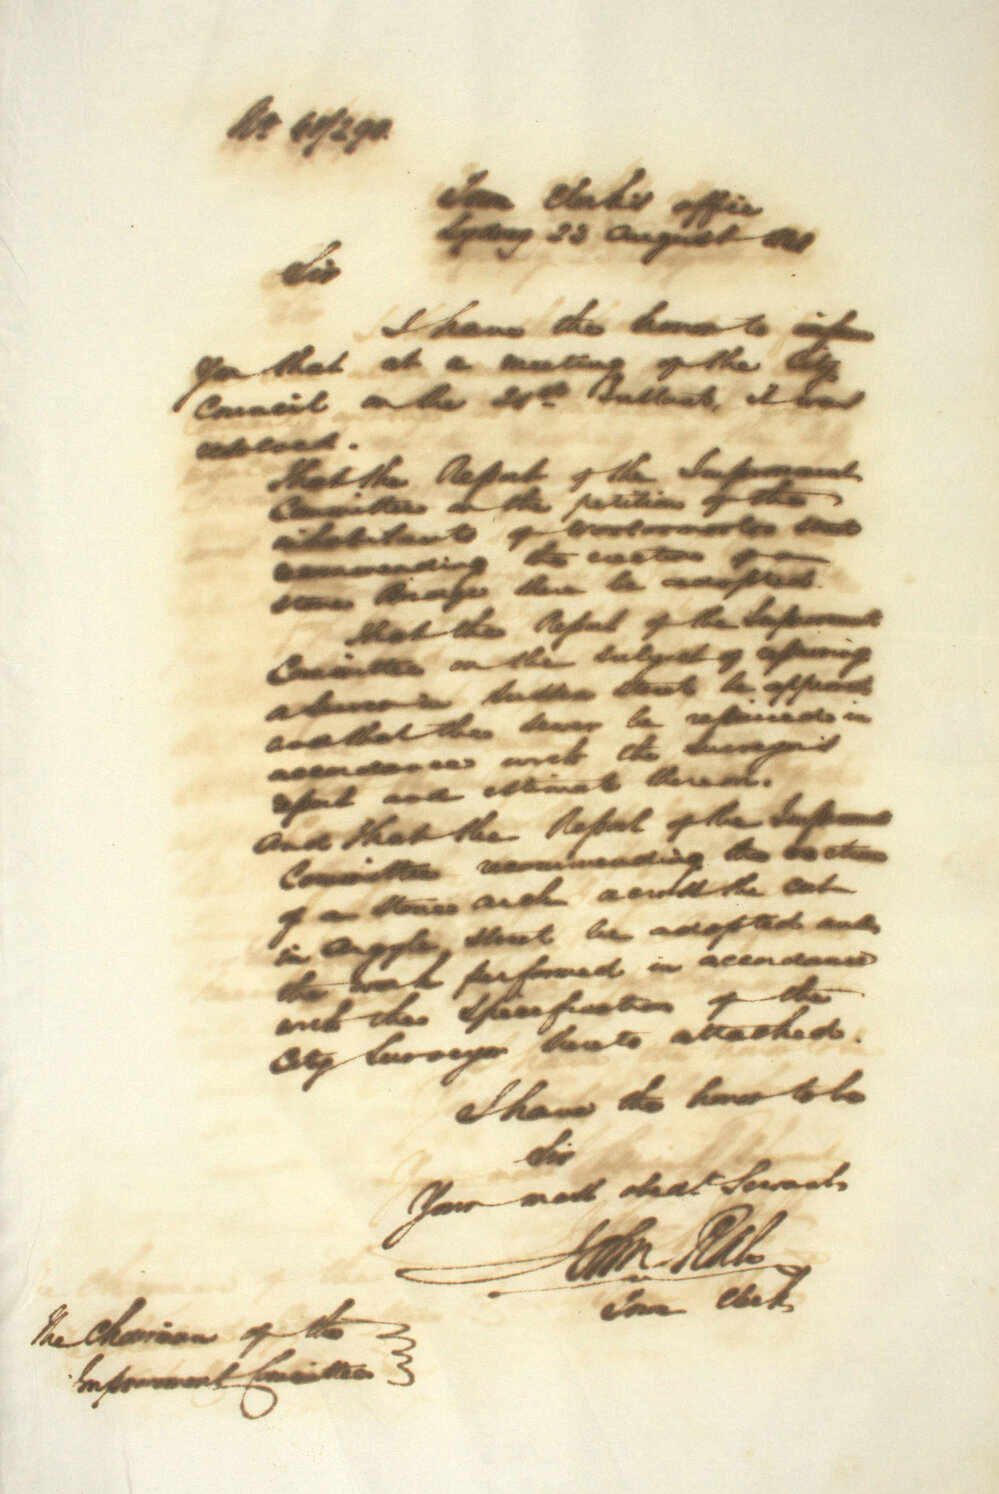 No 60/290.
Town Clerk's office
Sydney 23 August
Sir
I have the honor to inform
You that at a meeting of the City
Council on the 20th Instant, it was
resolved.
That the Report of the Improvement
Committee on the petition of the
inhabitants of Woolloomooloo
recommending the erection of a
stone Bridge there be adopted.
That the Report of the Improvement
Committee on the subject of repairing
a Sewer in Sussex Street be
and that the Sewer be repaired in
accordance with the Surveyor's
report and estimate thereon.
And that the Report of the Improvement
Committee recommending the erection
of a stone arch across the cut
in Argyle Street be adopted and
the work performed in accordance
with the Specification of the
City Surveyor hereto attached.
I have the honor to be
Sir
Your most obedt Servant
John
Town Clerk
The Chairman of the
Improvement Committee